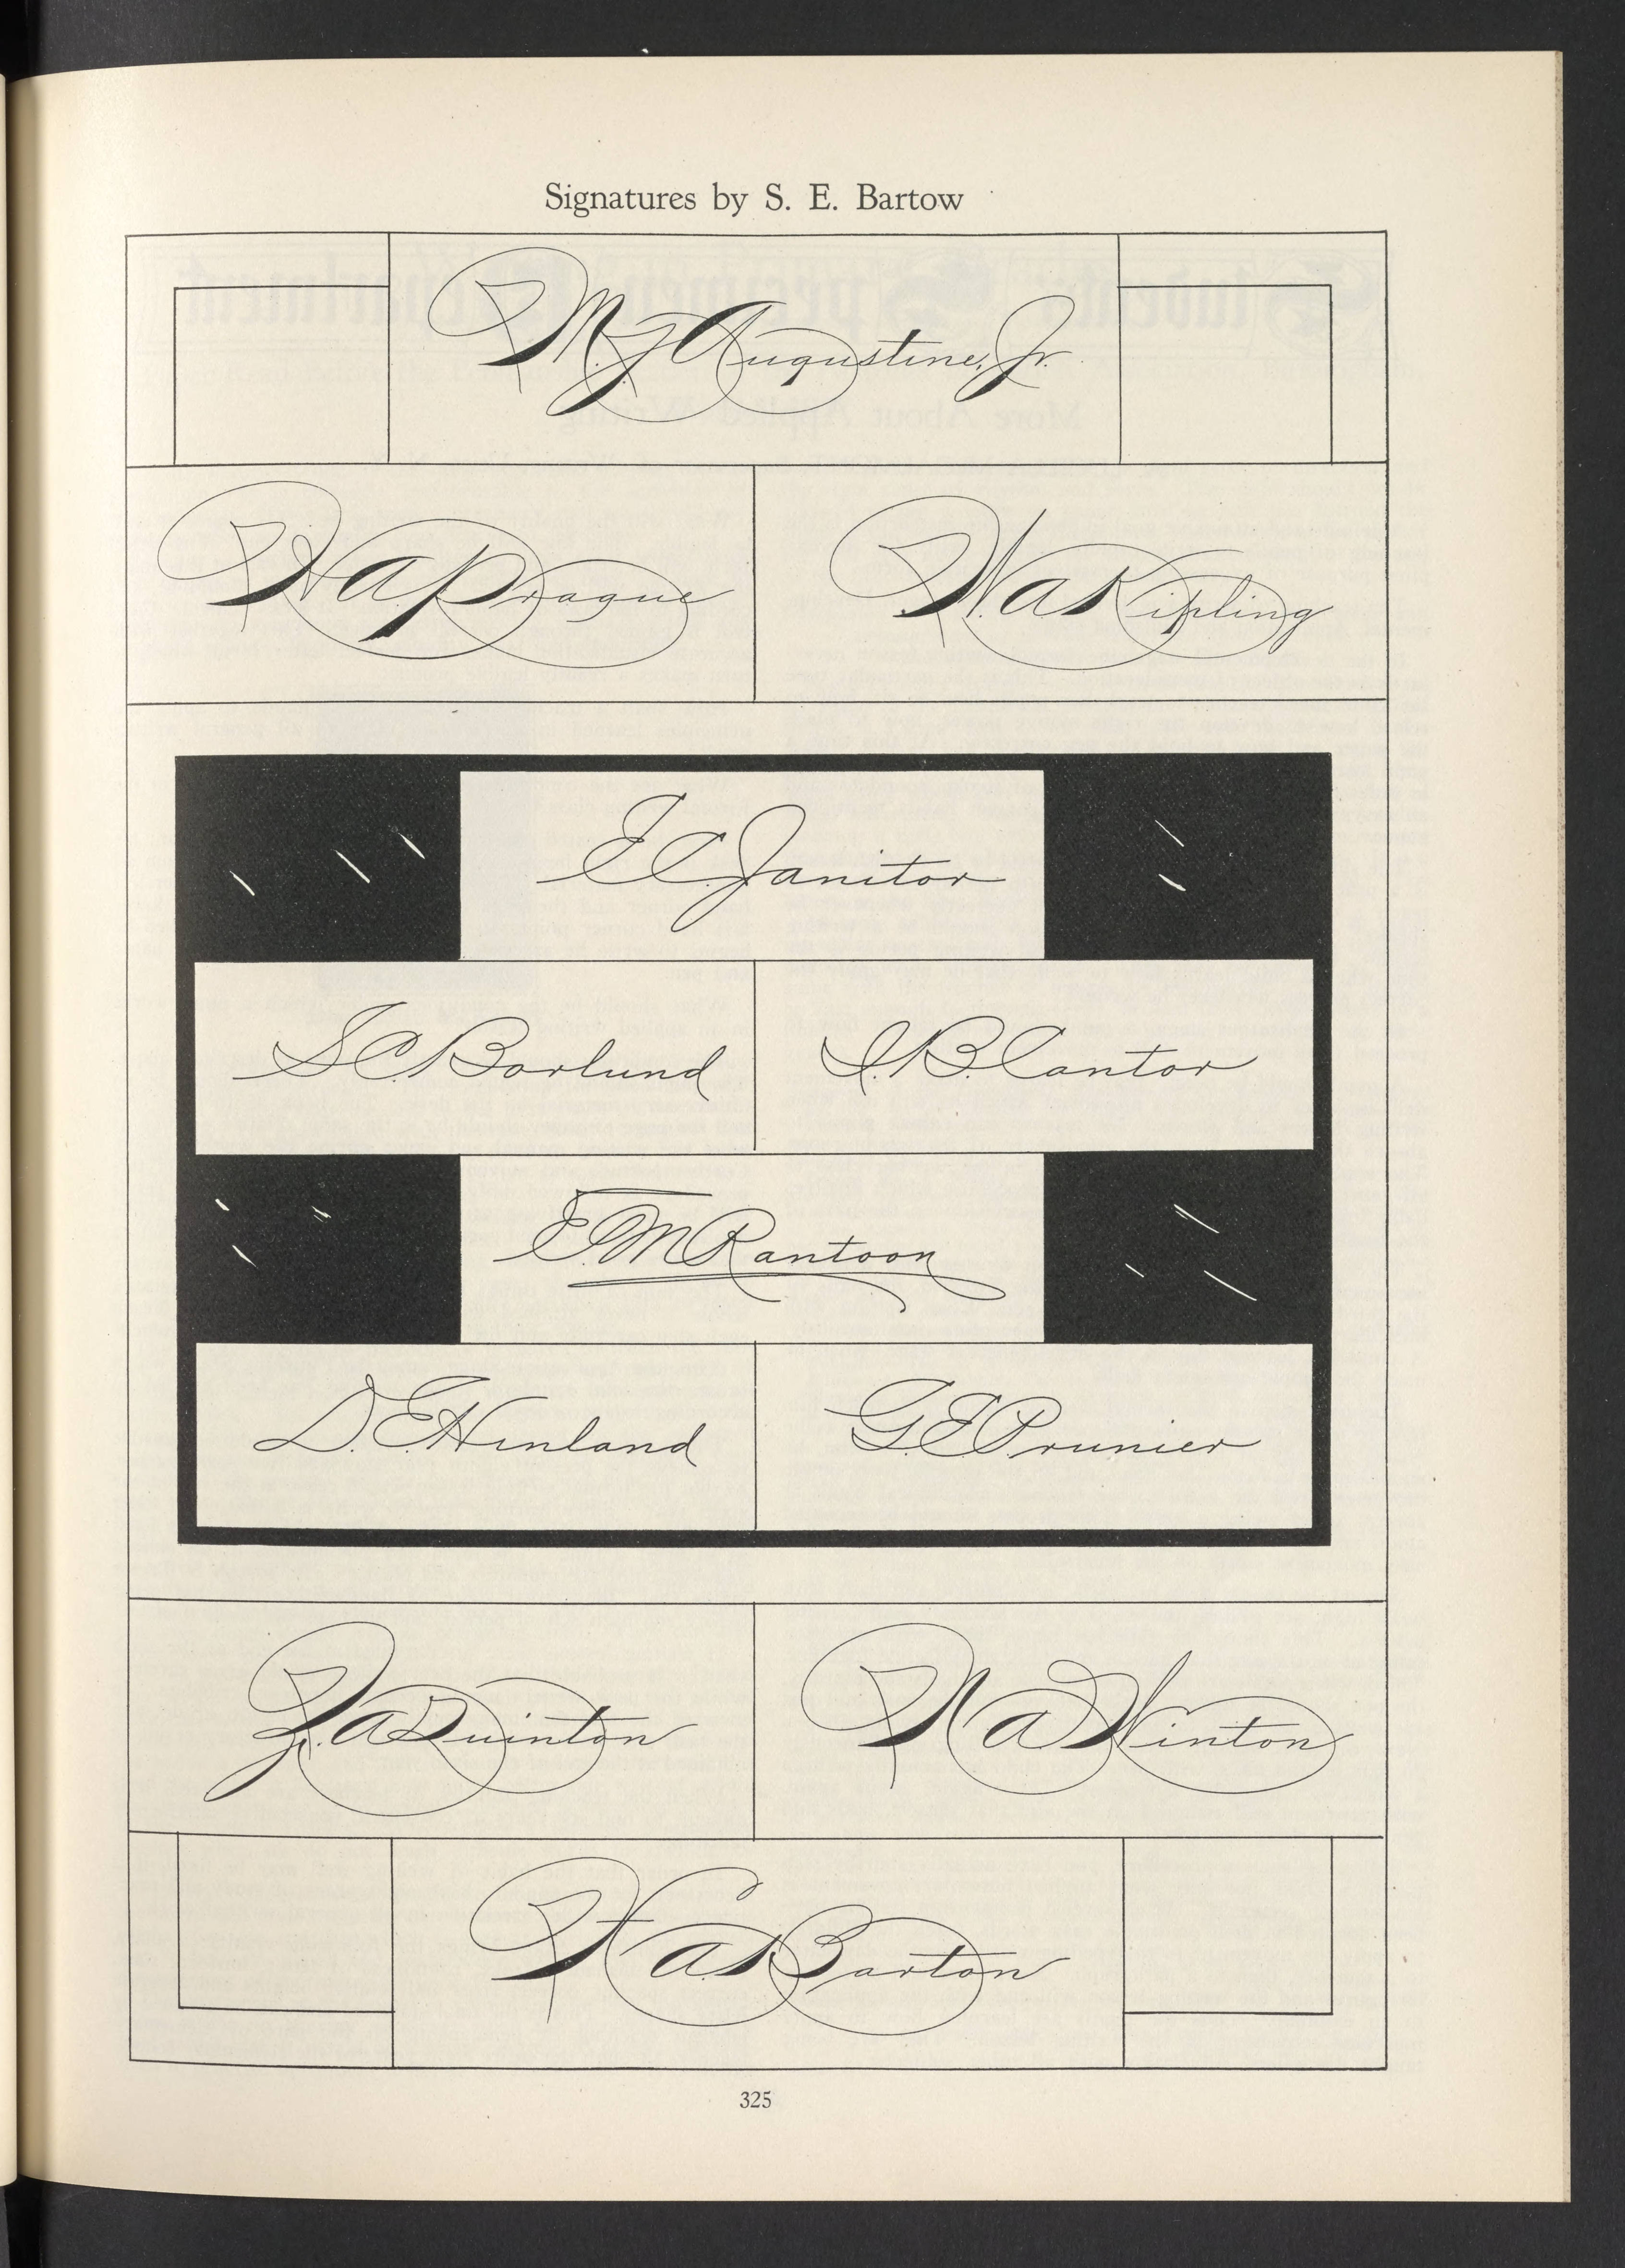 Signatures by S. E. Bartow
M. J. Augustine, Jr.
H. A. Prague
W. A. Kipling
E. C. Janitor
S. C. Borlund
I. B. Cantor
E. M. Rantoon
D. E. Hinland
G. E. Prunier
Z. A. Quinton
N. A. Winton
F. A. Barton
325